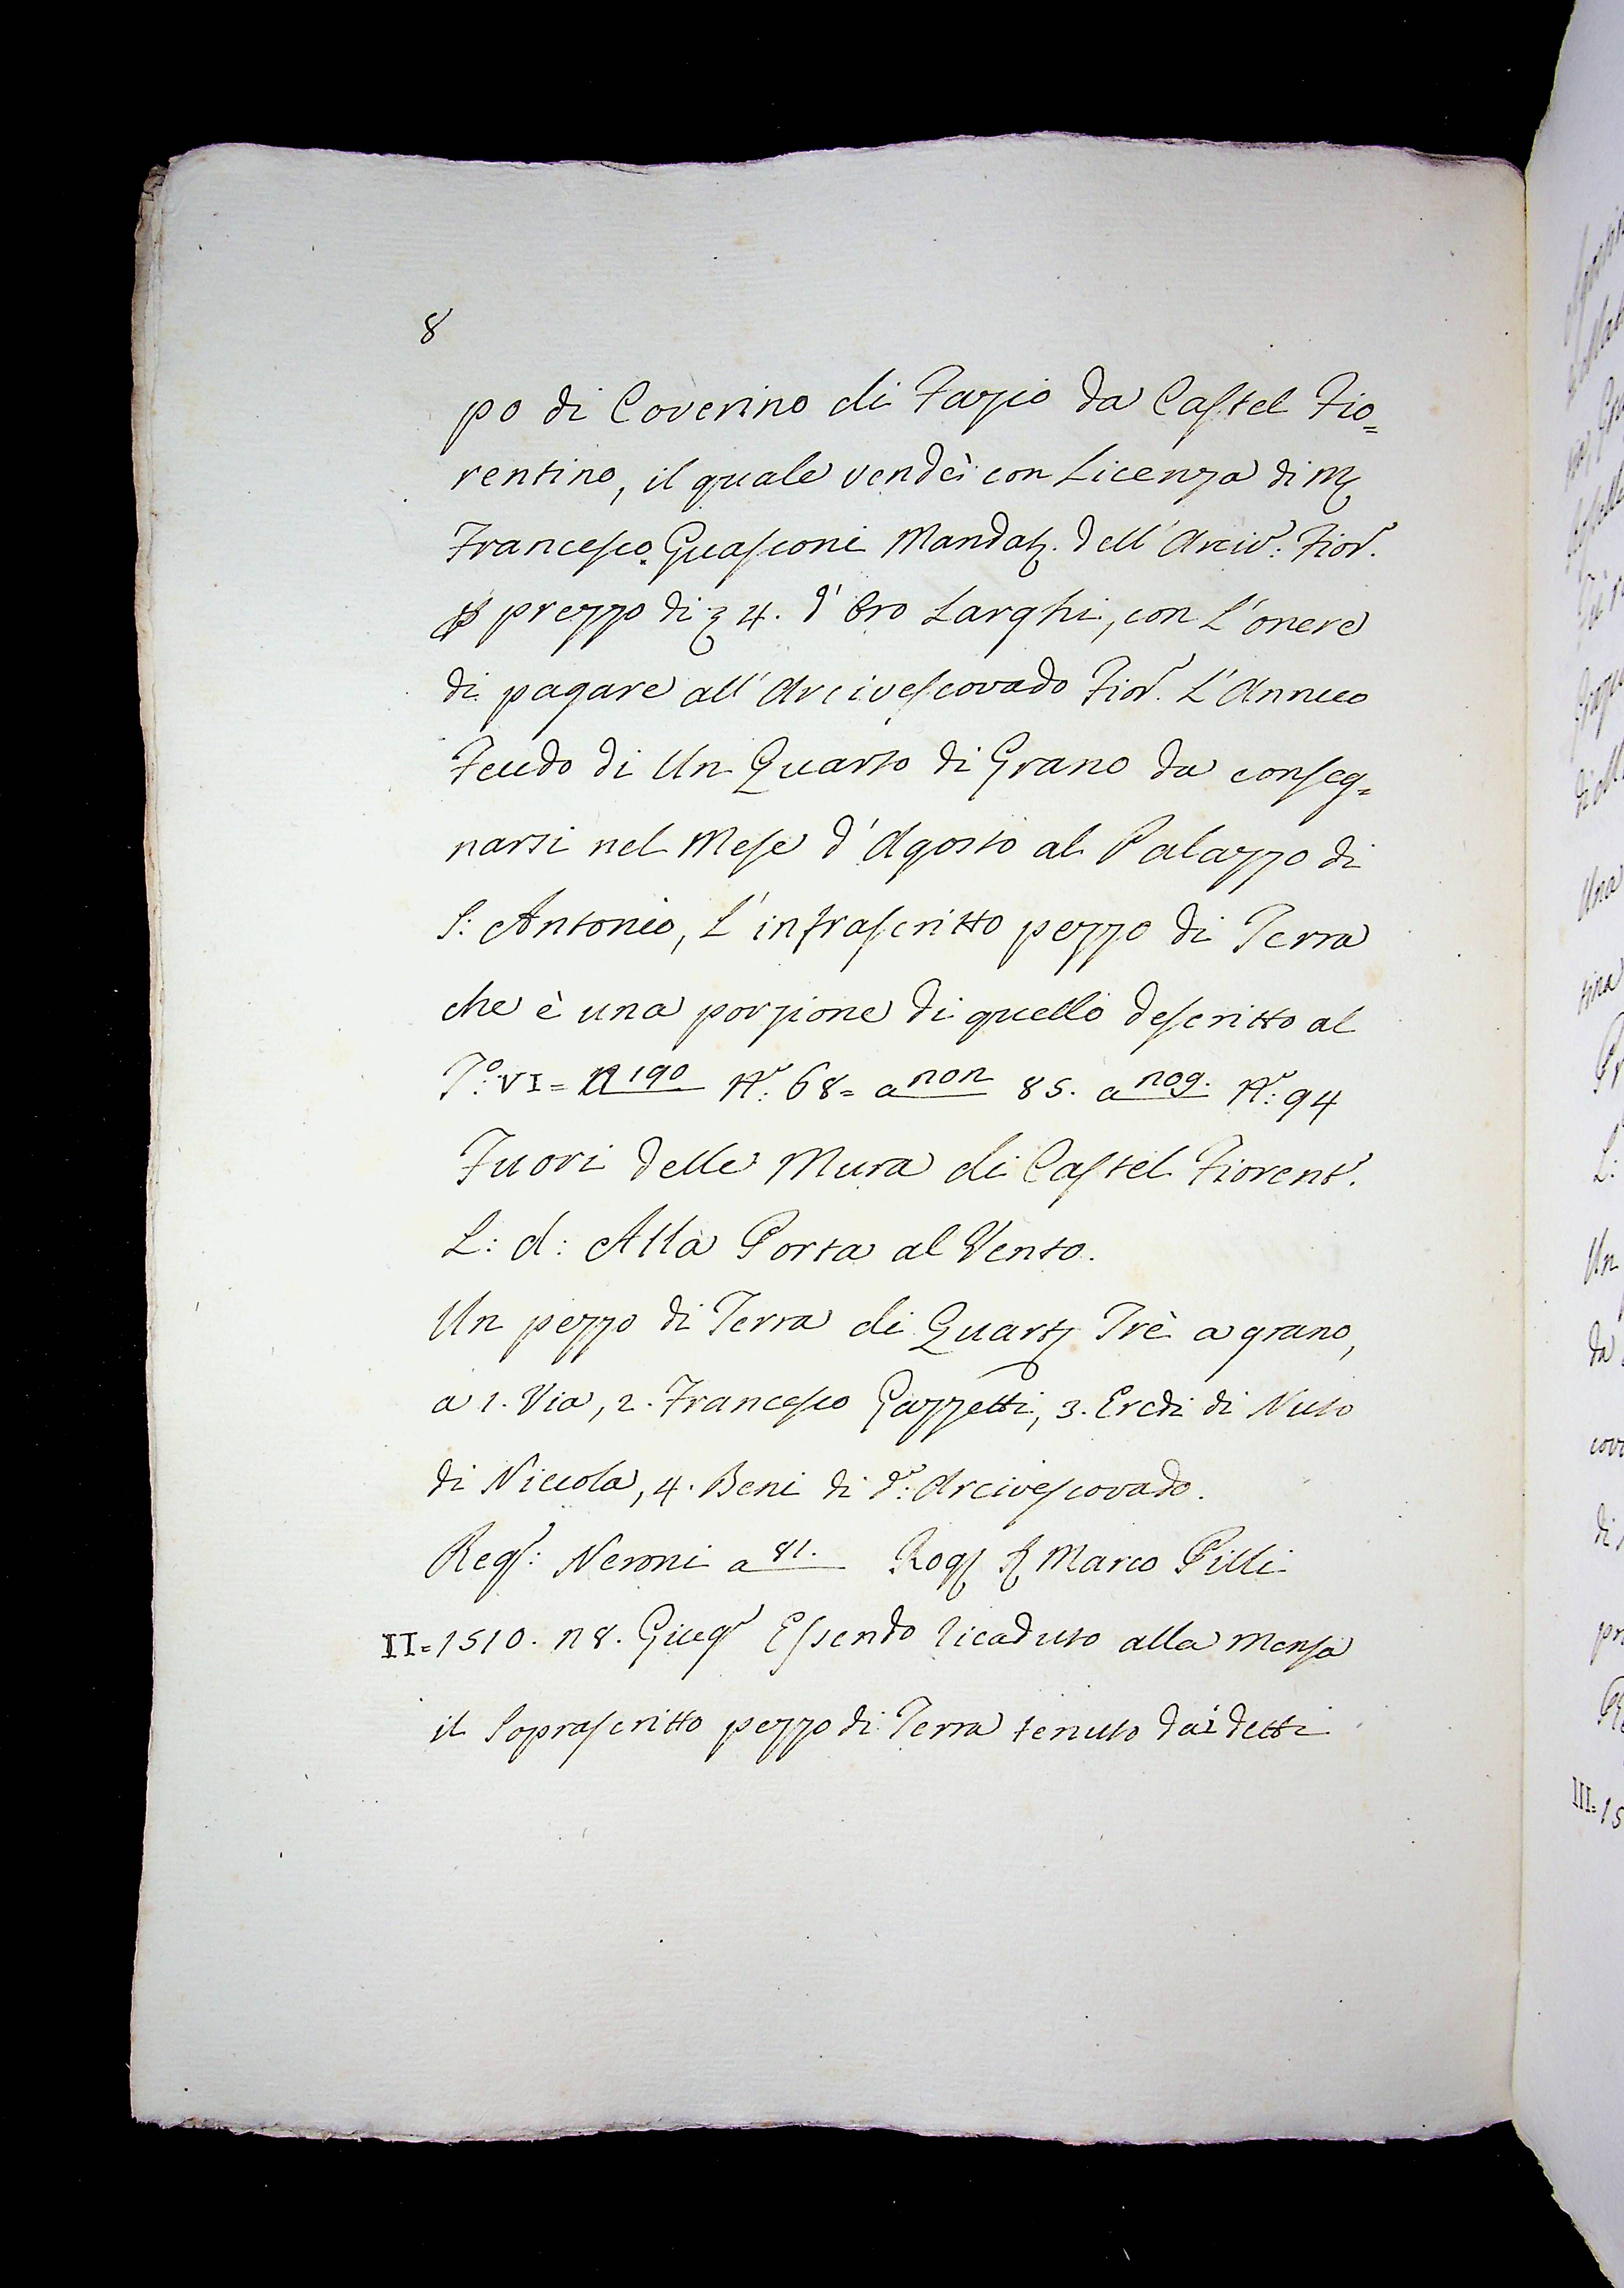 8
po di Coverino di Fazio da Castel Fio=
rentino, il quale vendè con Licenza di M
Francesco Guasconi Mandat. dell' Arciv: Fior.
prezzo di 4. d' Oro Larghi, con L' onere
di pagare all' Arcivescovado Fior. L' Annuo
Feudo di Un Quarto di Grano da conseg=
narsi nel Mese d' Agosto al Palazzo di
S: Antonio, L' infrascritto pezzo di Terra
che è una porzione di quello descritto al
T.º: VI= 190 N.º: 68= a 85. a N.º: 94
Fuori delle Mura di Castel Fiorent.
L: d: Alla Porta al Vento.
Un pezzo di Terra di Quart Trè a grano,
a 1. Via, 2. Francesco Gazzetti, 3. Eredi di Nuto
di Niccola, 4. Beni di d.º: Arcivescovado.
Reg: Neroni a 81. Rog Marco Pilli
II= 1510. n 8. Giug Essendo ricaduto alla Mensa
il Soprascritto pezzo di Terra tenuto dai detti